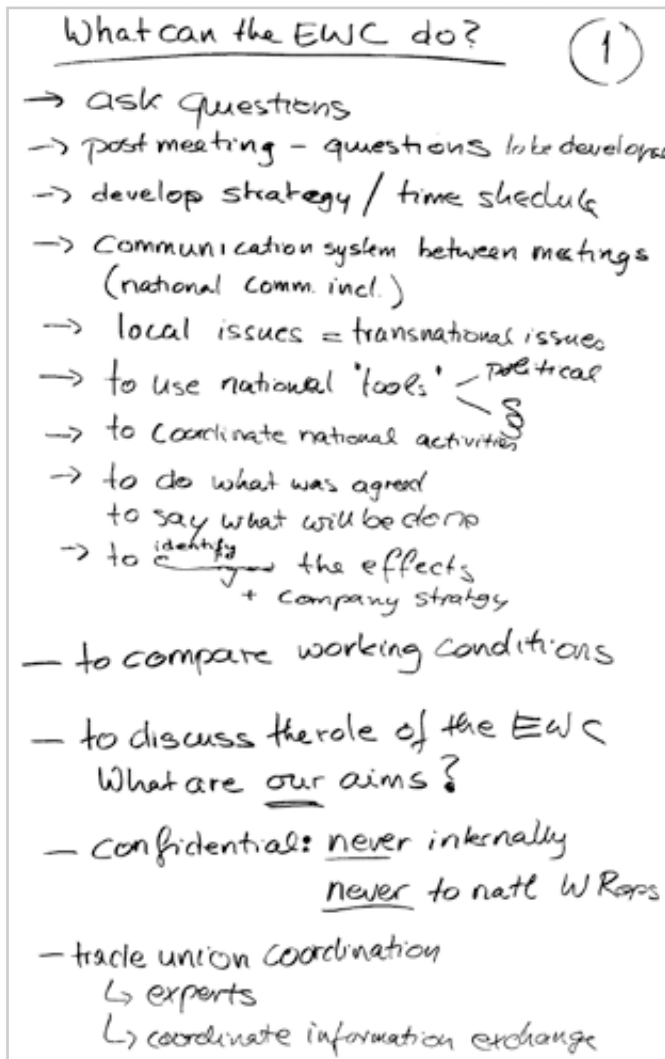 What can the EWC do?
1
→ ask questions
→ post meeting - questions to be developed
→ develop strategy / time shedule
→ Communication system between meetings
(national comm. incl.)
→ local issues = transnational issues
→ to use national 'tools' < political
§
→ to coordinate national activities
→ to do what was agreed
to say what will be done
→ to identify the effects
+ company strategy
— to compare working conditions
— to discuss the role of the EWC
What are our aims?
— confidential: never internally
never to natl WReps
— trade union coordination
↳ experts
↳ coordinate information exchange